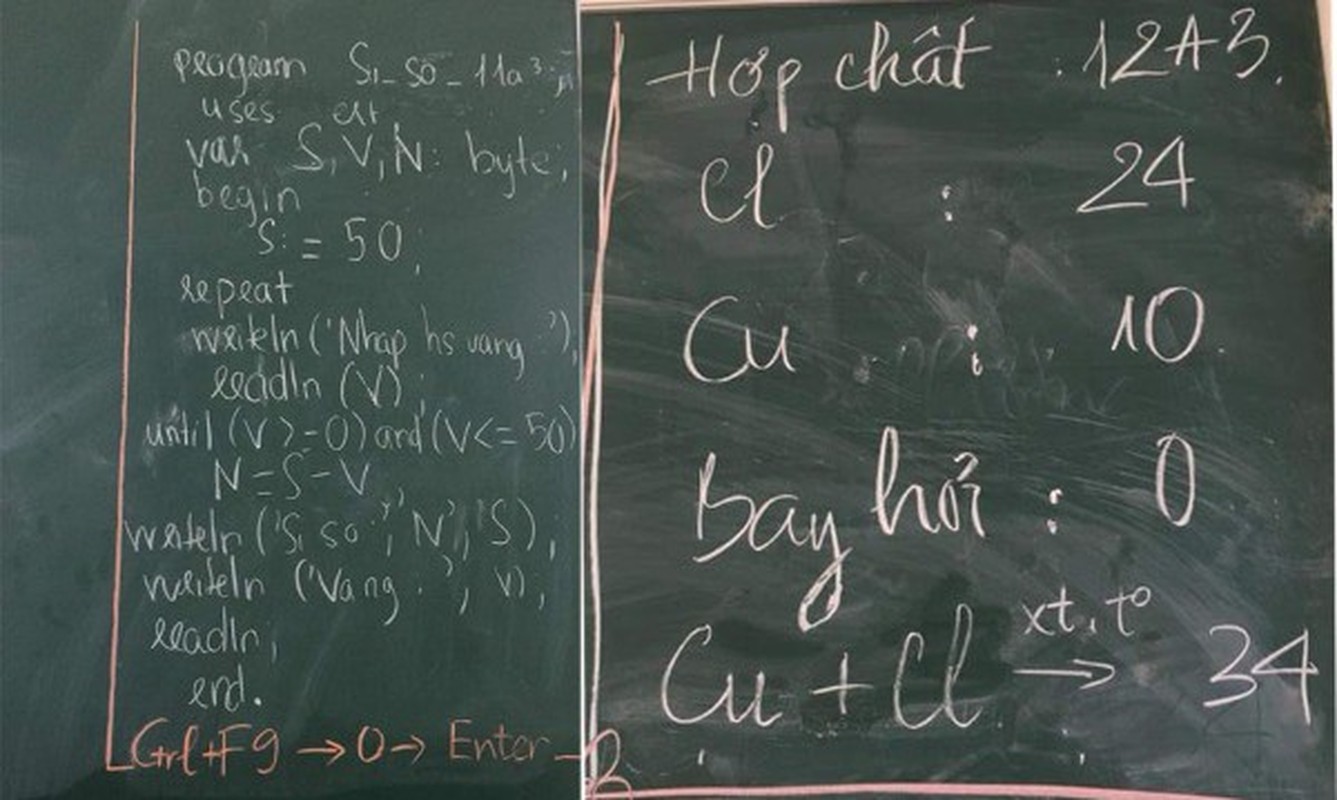 program Si_so_11a3;
uses crt
var S,V,N: byte;
begin
S:=50;
repeat
writeln('Nhap hs vang:');
readln(V);
until(V>=0)and(V<=50)
N=S-V
writeln('Si so:',N,'S);
writeln('Vang:', V);
readln;
end.
Ctrl+F9 → 0 → Enter
Hợp chất : 12A3.
Cl : 24
Cu : 10
Bay hơi : 0
Cu + Cl xt,t° → 34